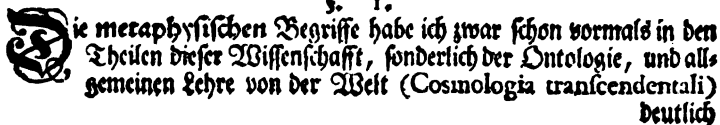 §. 1.
Die metaphysischen Begriffe habe ich zwar schon vormals in den
Theilen dieser Wissenschafft, sonderlich der Ontologie, und all-
gemeinen Lehre von der Welt (Cosmologia transcendentali)
deutlich